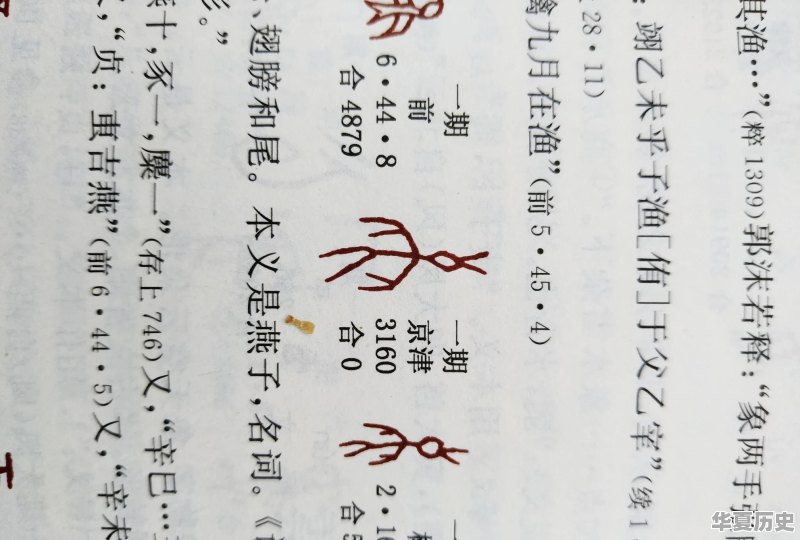 其渔…”(粹1309)郭沫若释：“象两手
：翊乙未乎子渔[侑]于父乙宰”(续1
28·11)
禽九月在渔”(前5·45·4)
一期 一期
前 京津
6·44·8 3160 2·1
合4879 合0 合
、翅膀和尾。本义是燕子，名词。《
。”
十，豕一，麋一”(存上746)又，“辛巳…
，“贞：叀吉燕”(前6·44·5)又，“辛未
华夏历史